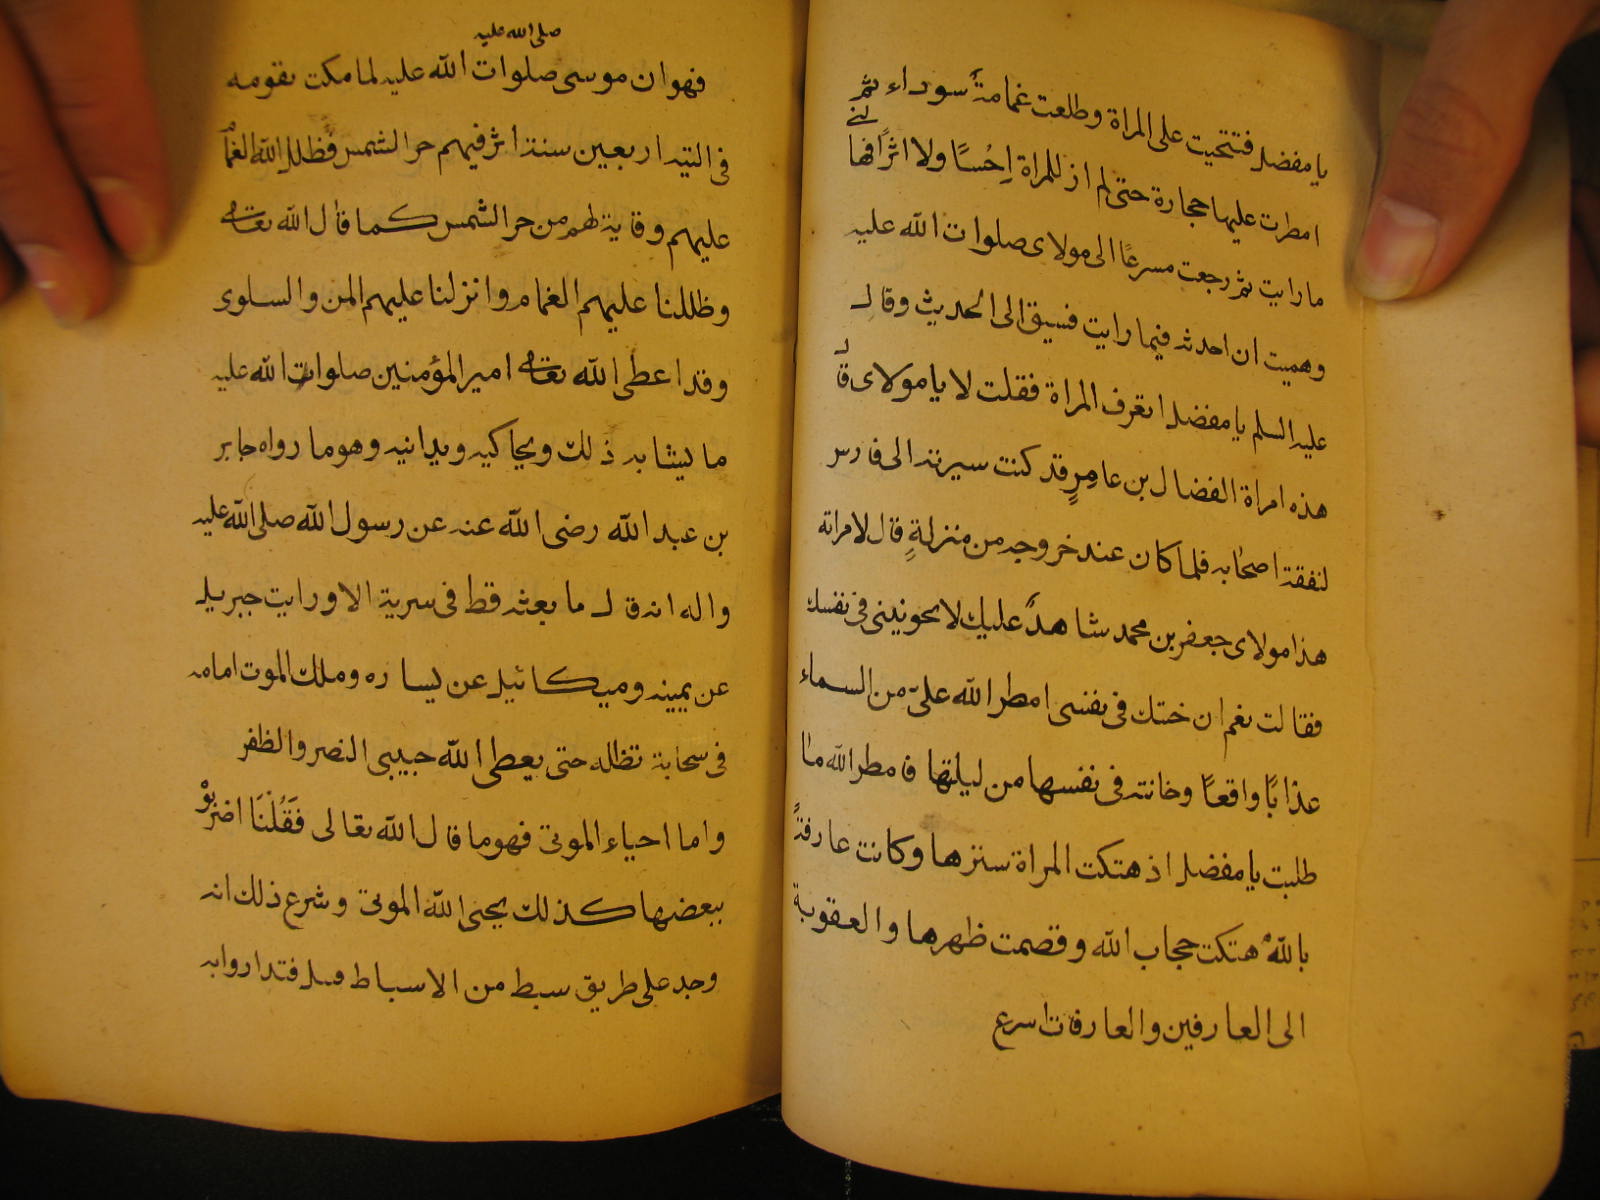 يا مفضل فتنحيت على المراة وطلعت غمامة سوداء ثم
امطرت عليها حجارة حتى لم ار للمراة احسا ولا اثرا فها لني
ما رايت ثم رجعت مسرعا الى مولاى صلوات الله عليه
وهميت ان احدثه فيما رايت فسبق الى الحديث وقال
عليه السلم يا مفضل اتعرف المراة فقلت لا يا مولاى قال
هذه امراة الفضال بن عامر قد كنت سيرته الى فارس
لنفقة اصحابه فلما كان عند خروجه من منزله قال لامراته
هذا مولاى جعفر بن محمد شاهد عليك لا تخونيني في نفسك
فقالت نعم ان خنتك في نفسى امطر الله على من السماء
عذابا واقعا وخانته في نفسها من ليلتها فامطر الله ما
طلبت يا مفضل اذ هتكت المراة سترها وكانت عارفة
بالله هتكت حجاب الله وقصمت ظهرها والعقوبة
الى العارفين والعارفات اسرع
صلى الله عليه
فهو ان موسى صلوات الله عليه لما مكث بقومه
فى التيه اربعين سنة اثر فيهم حر الشمس فظلل الله الغمام
عليهم وقاية لهم من حر الشمس كما قال الله تعالى
وظللنا عليهم الغمام وانزلنا عليهم المن والسلوى
وقد اعطى الله تعالى امير المؤمنين صلوات الله عليه
ما يشابه ذلك ويحاكيه ويدانيه وهو ما رواه جابر
بن عبد الله رضى الله عنه عن رسول الله صلى الله عليه
واله انه قال ما بعثه قط فى سرية الا ورايت جبريل
عن يمينه وميكائيل عن يساره وملك الموت امامه
فى سحابة تظله حتى يعطى الله حبيبى النصر والظفر
واما احياء الموتى فهو ما قال الله تعالى فَقُلْنَا اضربوْ
ببعضها كذلك يحيى الله الموتى وشرع ذلك انه
وجد على طريق سبط من الاسباط قتيل فتداروا به